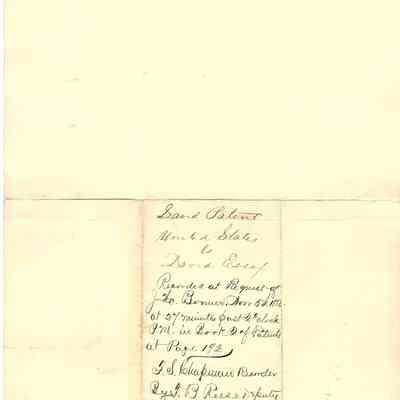 Land Patent
United States
to
David Essex
Recorded at Request of
J. W. Bonner, Nov 5d 187
at 27 minutes past 4 o'clock
P.M. in Book D of Patents
at Page 192
T. S. Chapman Recorder
By J. B. Reese Deputy